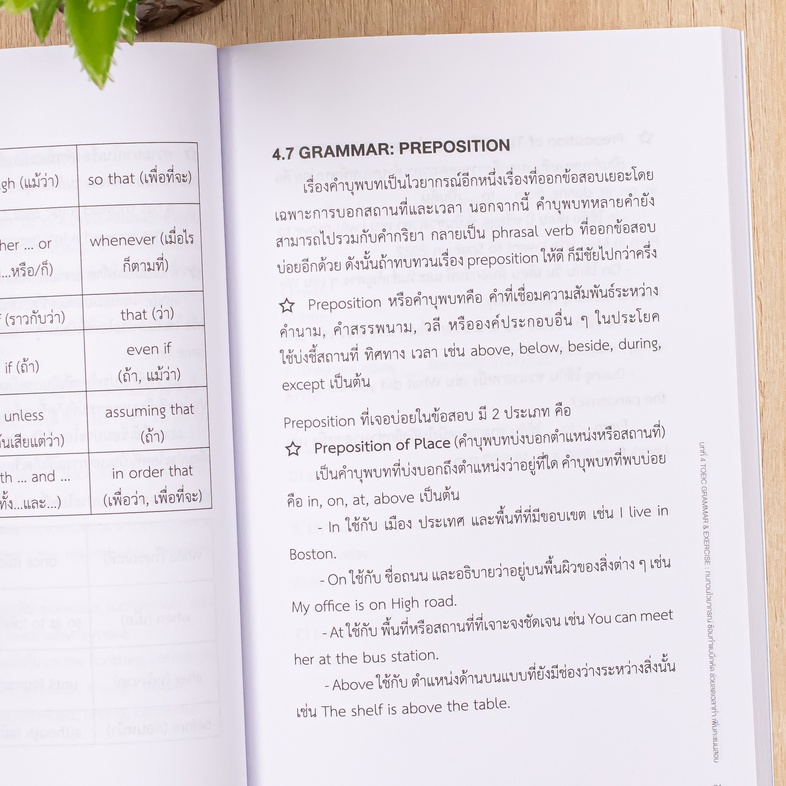 gh (แม้ว่า) so that (เพื่อที่จะ)
her ... or whenever (เมื่อไร
...หรือ/ก็) ก็ตามที่)
(ราวกับว่า) that (ว่า)
if (ถ้า) even if
(ถ้า, แม้ว่า)
unless assuming that
นเสียแต่ว่า) (ถ้า)
th ... and ... in order that
ทั้ง...และ...) (เพื่อว่า, เพื่อที่จะ)
4.7 GRAMMAR: PREPOSITION
เรื่องคำบุพบทเป็นไวยากรณ์อีกหนึ่งเรื่องที่ออกข้อสอบเยอะโดย
เฉพาะการบอกสถานที่และเวลา นอกจากนี้ คำบุพบทหลายคำยัง
สามารถไปรวมกับคำกริยา กลายเป็น phrasal verb ที่ออกข้อสอบ
บ่อยอีกด้วย ดังนั้นถ้าทบทวนเรื่อง preposition ให้ดี ก็มีชัยไปกว่าครึ่ง
☆ Preposition หรือคำบุพบทคือ คำที่เชื่อมความสัมพันธ์ระหว่าง
คำนาม, คำสรรพนาม, วลี หรือองค์ประกอบอื่น ๆ ในประโยค
ใช้บ่งชี้สถานที่ ทิศทาง เวลา เช่น above, below, beside, during,
except เป็นต้น
Preposition ที่เจอบ่อยในข้อสอบ มี 2 ประเภท คือ
☆ Preposition of Place (คำบุพบทบ่งบอกตำแหน่งหรือสถานที่)
เป็นคำบุพบทที่บ่งบอกถึงตำแหน่งว่าอยู่ที่ใด คำบุพบทที่พบบ่อย
คือ in, on, at, above เป็นต้น
- In ใช้กับ เมือง ประเทศ และพื้นที่ที่มีขอบเขต เช่น I live in
Boston.
- On ใช้กับ ชื่อถนน และอธิบายว่าอยู่บนพื้นผิวของสิ่งต่าง ๆ เช่น
My office is on High road.
- At ใช้กับ พื้นที่หรือสถานที่ที่เจาะจงชัดเจน เช่น You can meet
her at the bus station.
- Above ใช้กับ ตำแหน่งด้านบนแบบที่ยังมีช่องว่างระหว่างสิ่งนั้น
เช่น The shelf is above the table.
บทที่ 4 TOEIC GRAMMAR & EXERCISE :